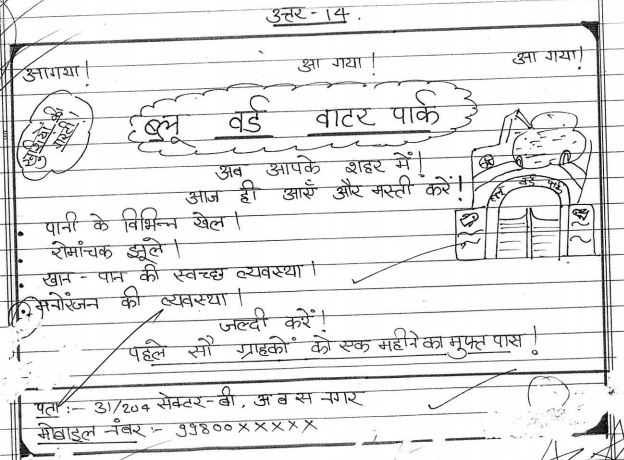 उत्तर - 14.
आ गया! आ गया! आ गया!
खुशियों की मस्ती!
ब्लू वर्ड वाटर पार्क
अब आपके शहर में!
आज ही आएँ और मस्ती करें!
ब्लू वर्ड पार्क
• पानी के विभिन्न खेल।
• रोमांचक झूले।
• खान - पान की स्वच्छ व्यवस्था।
• मनोरंजन की व्यवस्था।
जल्दी करें!
पहले सौ ग्राहकों को एक महीने का मुफ्त पास!
पता :- 31/204 सेक्टर - बी, अ ब स नगर
मोबाइल नंबर :- 99800xxxxx